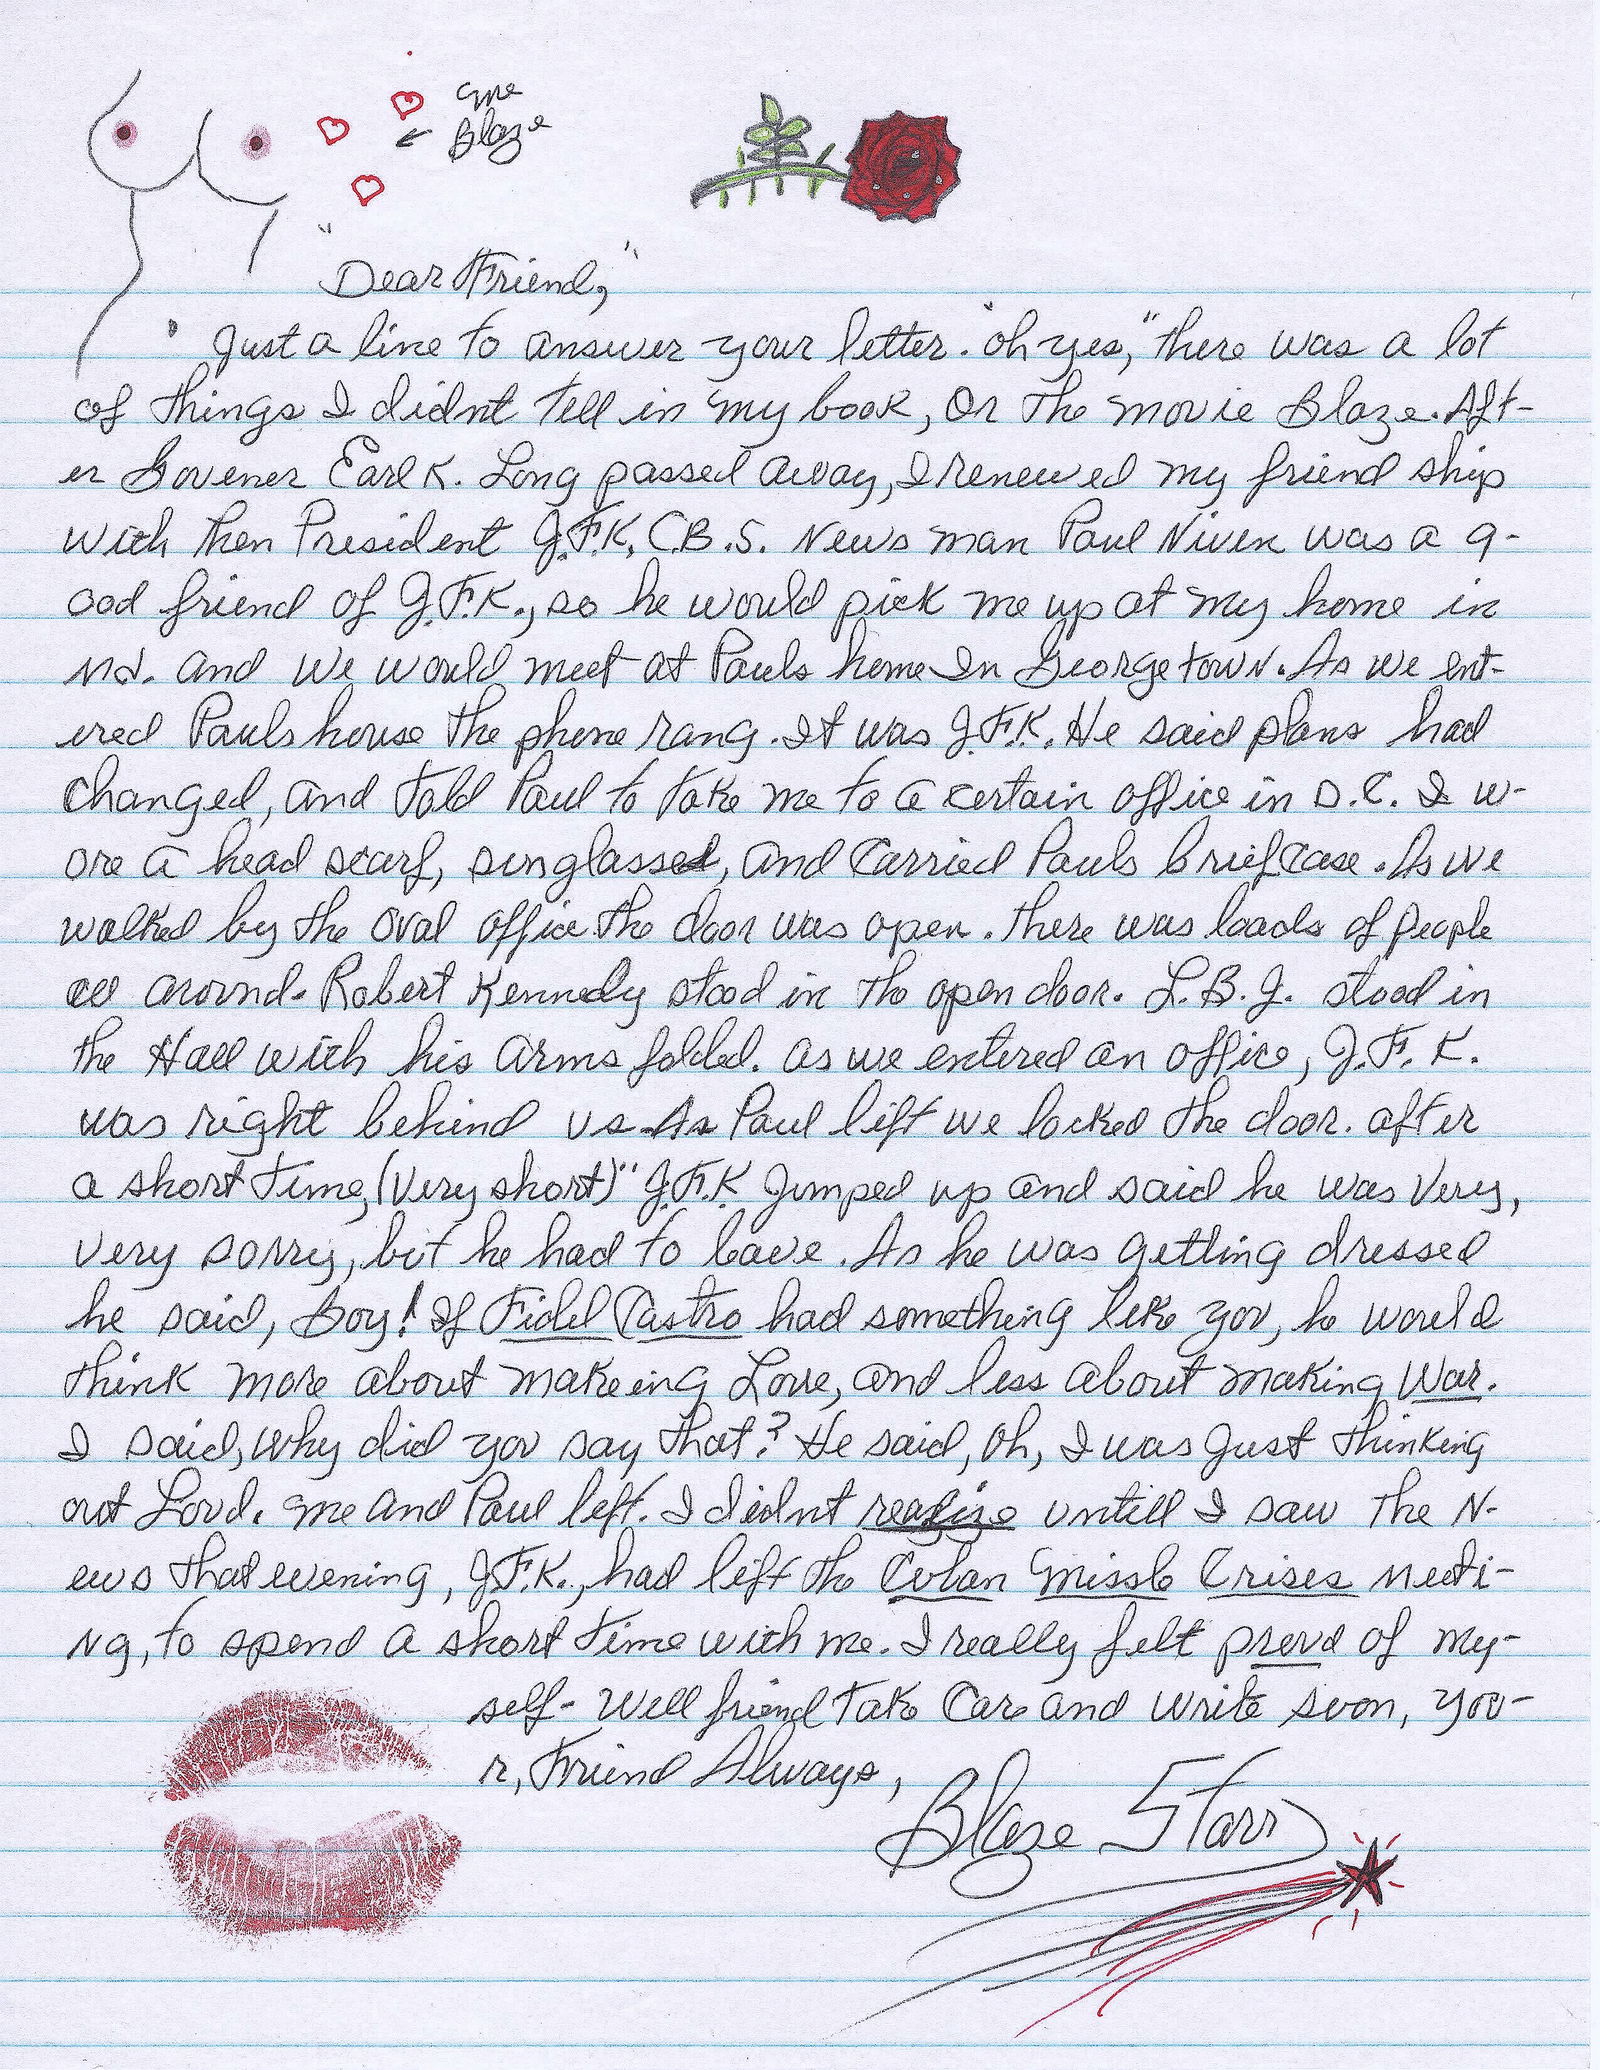 me
Blaze
"Dear Friend,"
Just a line to answer your letter. "oh yes," there was a lot
of things I didnt tell in my book, or the movie Blaze. Aft-
er Govener Earl K. Long passed away, I renewed my friend ship
with then President J.F.K. C.B.S. News man Paul Niven was a g-
ood friend of J.F.K., so he would pick me up at my home in
Md. and we would meet at Pauls home In Georgetown. As we ent-
ered Pauls house the phone rang. It was J.F.K. He said plans had
changed, and told Paul to take me to a certain office in D.C. I w-
ore a head scarf, sunglasses, and carried Pauls brief case. As we
walked by the oval office the door was open. There was loads of people
all around. Robert Kennedy stood in the open door. L.B.J. stood in
the Hall with his arms folded. as we entered an office, J.F.K.
was right behind us. As Paul left we locked the door. after
a short time, (very short)" J.F.K Jumped up and said he was very,
very sorry, but he had to leave. As he was getting dressed
he said, Boy! If Fidel Castro had something like you, he would
think more about makeing Love, and less about making War.
I said, why did you say that? He said, Oh, I was just thinking
out Loud. me and Paul left. I didnt realize untill I saw the N-
ews that evening, J.F.K., had left the Cuban Missle Crises meeti-
ng, to spend a short time with me. I really felt proud of my-
self- Well friend take care and write soon, you-
r, Friend Always,
Blaze Starr